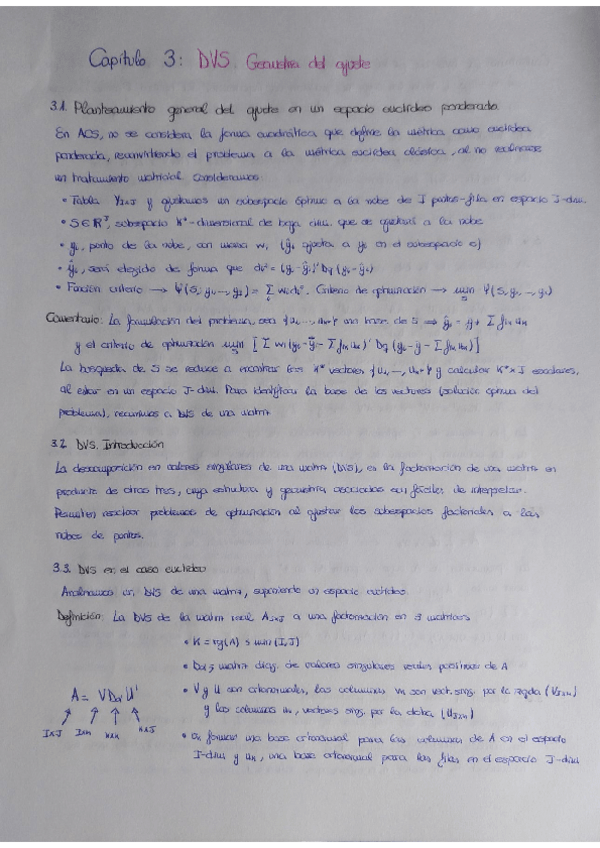 Capítulo 3: DVS. Geometría del ajuste
3.1. Planteamiento general del ajuste en un espacio euclídeo ponderado
En ACS, no se considera la forma cuadrática que define la métrica como euclídea
ponderada, reconvirtiendo el problema a la métrica euclídea clásica, al no realizarse
un tratamiento matricial. Consideramos:
• Tabla Y_IxJ y ajustamos un subespacio óptimo a la nube de I puntos-fila en espacio J-dim.
• S∈R^J, subespacio K*-dimensional de baja dim. que se ajustará a la nube
• y_i, punto de la nube, con masa w_i (ŷ_i ajusta a y_i en el subespacio s)
• ŷ_i, será elegido de forma que d_i² = (y_i - ŷ_i)' D_q (y_i - ŷ_i)
• Función criterio → Ψ(S; y_1, ..., y_I) = Σ w_i d_i². Criterio de optimización → min Ψ(S, y_1, ..., y_I)
Comentario: La formulación del problema, sea {u_1, ..., u_K*} una base de S ⇒ ŷ_i = ȳ + Σ f_ik u_k
y el criterio de optimización min [Σ w_i (y_i - ȳ - Σ f_ik u_k)' D_q (y_i - ȳ - Σ f_ik u_k)]
La búsqueda de S se reduce a encontrar los K* vectores {u_1, ..., u_K*} y calcular K* x I escalares,
al estar en un espacio J-dim. Para identificar la base de los vectores (solución óptima del
problema), recurrimos a DVS de una matriz
3.2. DVS. Introducción
La descomposición en valores singulares de una matriz (DVS), es la factorización de una matriz en
producto de otras tres, cuya estructura y geometría asociadas son fáciles de interpretar.
Permiten resolver problemas de optimización al ajustar los subespacios factoriales a las
nubes de puntos.
3.3. DVS en el caso euclídeo
Analizamos la DVS de una matriz, suponiendo un espacio euclídeo.
Definición: La DVS de la matriz real A_IxJ a una factorización en 3 matrices
• K = rg(A) ≤ min(I,J)
• D_α; matriz diag. de valores singulares reales positivos de A
A = V D_α U'
• V y U son ortonormales, las columnas v_k son vect. sing. por la izqda (V_IxK)
y las columnas u_k, vectores sing. por la dcha (U_JxK)
IxJ IxK KxK KxJ
• v_k forman una base ortonormal para las columnas de A en el espacio
I-dim y u_k, una base ortonormal para las filas en el espacio J-dim